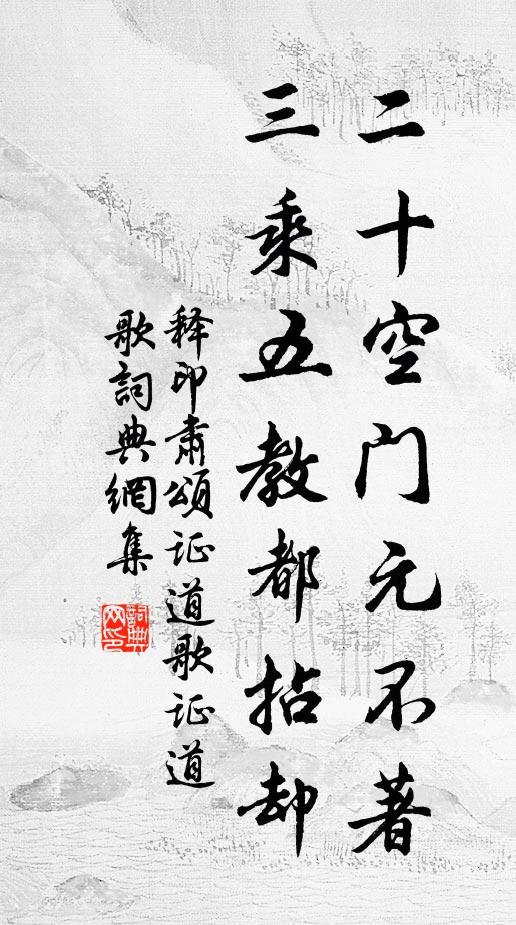 二十空门元不著
三乘五教都拈却
释印肃颂证道歌证道
歌詞典網集
詞典网印